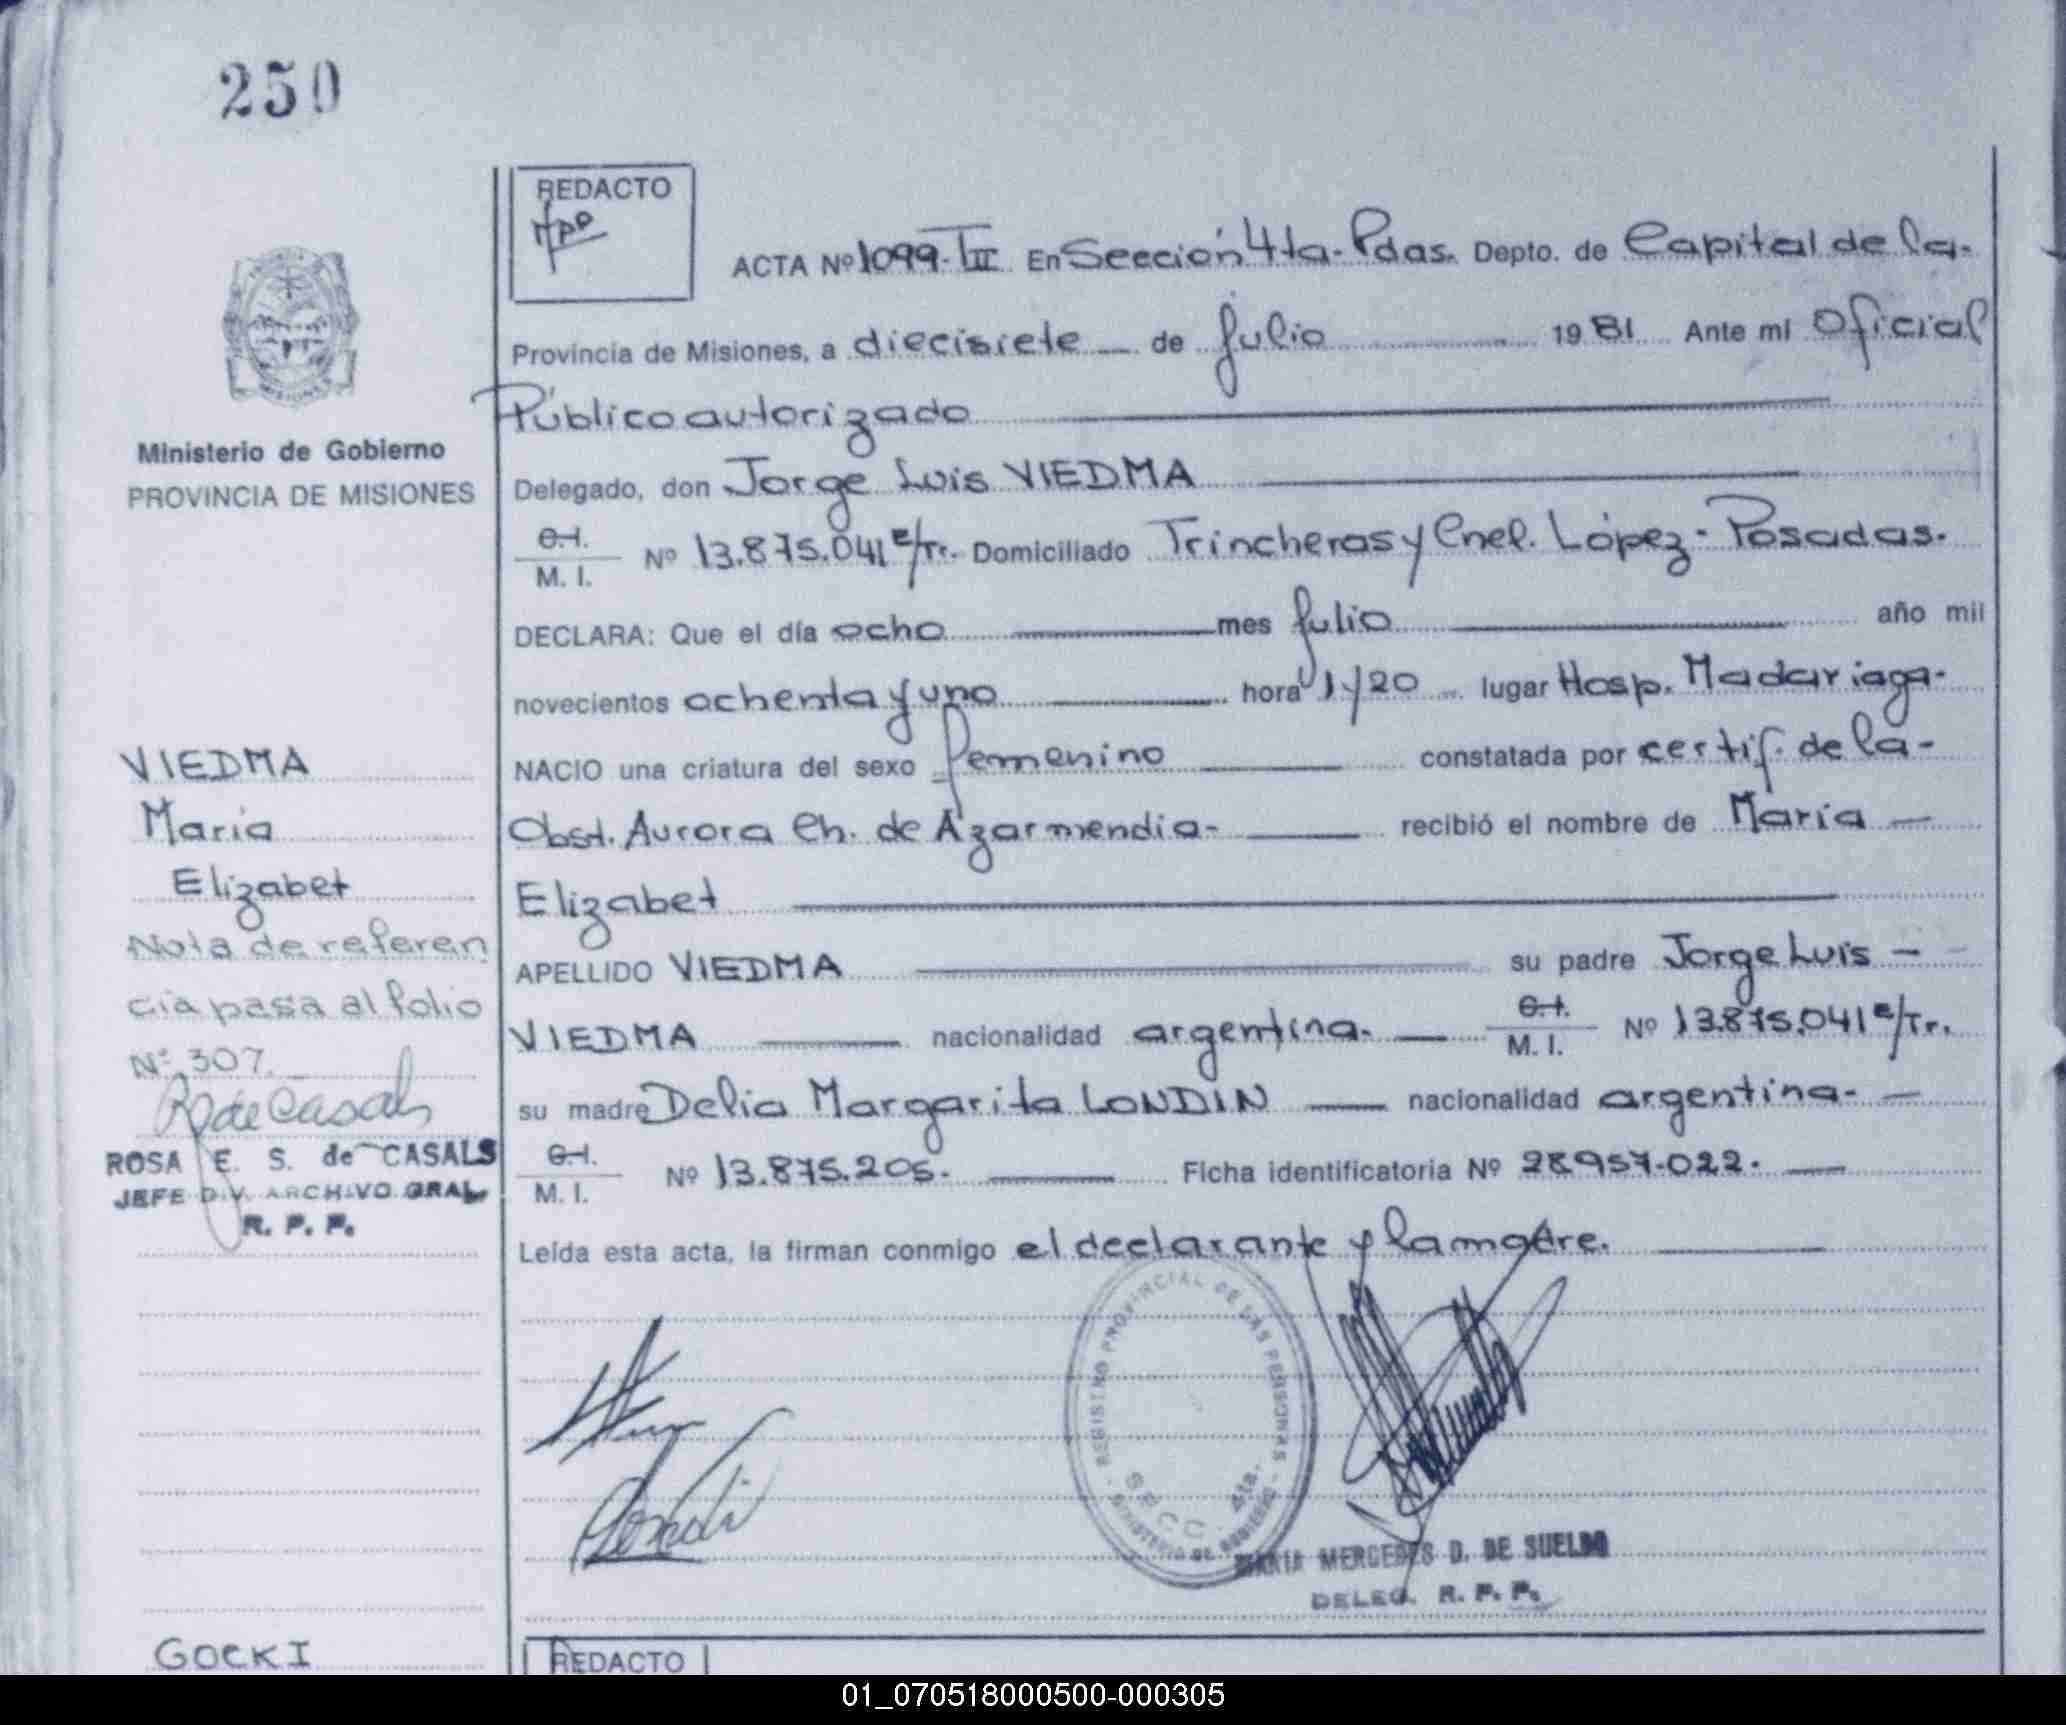 250
REDACTO
ACTA Nº 1099-TII En Sección 4ta- Pdas. Depto. de Capital de la-
Provincia de Misiones, a diecisiete de julio 1981 Ante mí Oficial
Público autorizado
Ministerio de Gobierno
PROVINCIA DE MISIONES
Delegado, don Jorge Luis VIEDMA
C.I.
M. I. Nº 13.875.041 e/Tr. Domiciliado Trincheras y Cnel. López- Posadas.
DECLARA: Que el día ocho mes julio año mil
novecientos ochenta y uno hora 1 y 20 lugar Hosp. Madariaga-
NACIO una criatura del sexo femenino constatada por certif. de la-
Obst. Aurora Ch. de Azarmendia- recibió el nombre de María
Elizabet
APELLIDO VIEDMA su padre Jorge Luis
VIEDMA nacionalidad argentina. C.I.
M. I. Nº 13.875.041 e/Tr.
su madre Delia Margarita LONDIN nacionalidad argentina-
C.I.
M. I. Nº 13.875.205. Ficha identificatoria Nº 28957-022.
Leída esta acta, la firman conmigo el declarante y la madre.
VIEDMA
María
Elizabet
Nota de referen
cia pasa al folio
Nº 307.
R de Casals
ROSA E. S. de CASALS
JEFE DIV. ARCHIVO GRAL
R. P. P.
REGISTRO PROVINCIAL DE LAS PERSONAS
SECC. 4ta.
MINISTERIO DE GOBIERNO
MARIA MERCEDES D. DE SUELDO
DELEG. R. P. P.
GOCKI
REDACTO
01_070518000500-000305